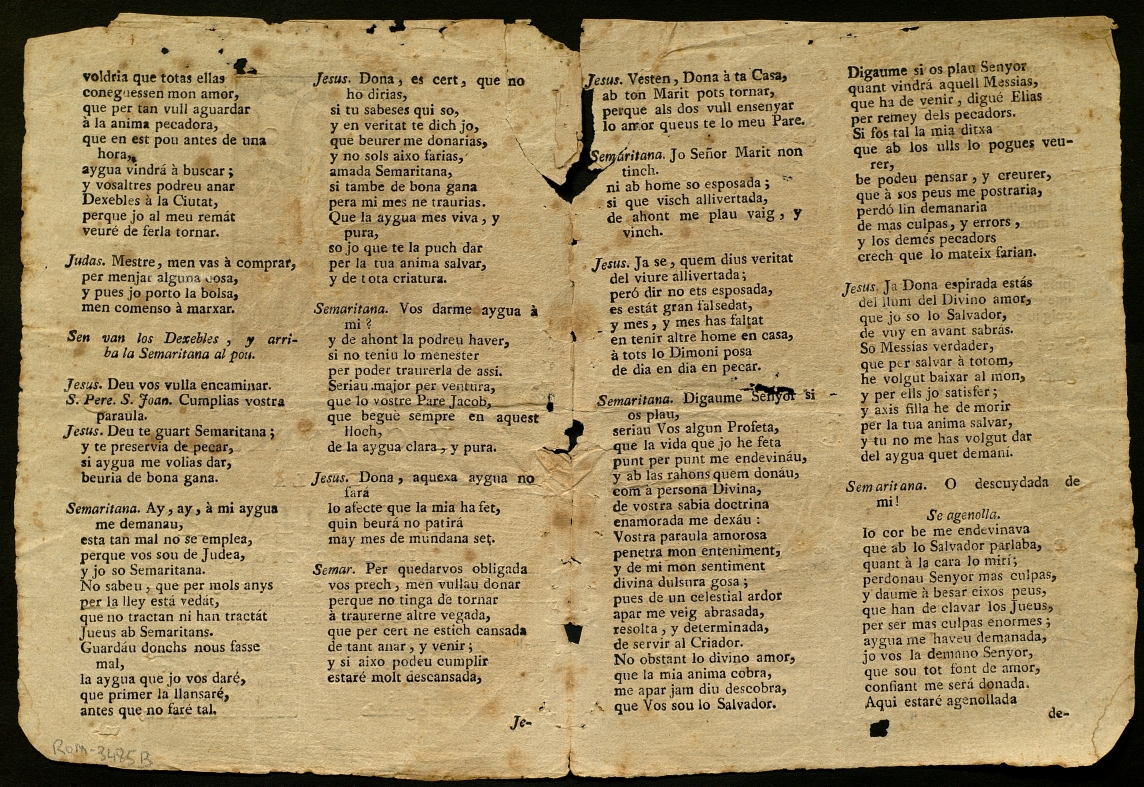 voldria que totas ellas
coneguessen mon amor,
que per tan vull aguardar
à la anima pecadora,
que en est pou antes de una
hora,
aygua vindrá à buscar;
y vosaltres podreu anar
Dexebles à la Ciutat,
perque jo al meu remát
veuré de ferla tornar.
Judas. Mestre, men vas à comprar,
per menjar alguna cosa,
y pues jo porto la bolsa,
men comenso à marxar.
Sen van los Dexebles, y arri-
ba la Semaritana al pou.
Jesus. Deu vos vulla encaminar.
S. Pere. S. Joan. Cumplias vostra
paraula.
Jesus. Deu te guart Semaritana;
y te preservia de pecar,
si aygua me volias dar,
beuria de bona gana.
Semaritana. Ay, ay, à mi aygua
me demanau,
esta tan mal no se emplea,
perque vos sou de Judea,
y jo so Semaritana.
No sabeu, que per mols anys
per la lley está vedát,
que no tractan ni han tractát
Jueus ab Semaritans.
Guardáu donchs nous fasse
mal,
la aygua que jo vos daré,
que primer la llansaré,
antes que no faré tal.
Jesus. Dona, es cert, que no
ho dirias,
si tu sabeses qui so,
y en veritat te dich jo,
què beurer me donarias,
y no sols aixo farias,
amada Semaritana,
si tambe de bona gana
pera mi mes ne traurias.
Que la aygua mes viva, y
pura,
so jo que te la puch dar
per la tua anima salvar,
y de tota criatura.
Semaritana. Vos darme aygua à
mi?
y de ahont la podreu haver,
si no teniu lo menester
per poder traurerla de assi.
Seriau major per ventura,
que lo vostre Pare Jacob,
que begué sempre en aquest
lloch,
de la aygua clara, y pura.
Jesus. Dona, aquexa aygua no
fará
lo afecte que la mia ha fet,
quin beurá no patirá
may mes de mundana set.
Semar. Per quedarvos obligada
vos prech, men vullau donar
perque no tinga de tornar
à traurerne altre vegada,
que per cert ne estich cansada
de tant anar, y venir;
y si aixo podeu cumplir
estaré molt descansada,
Je-
Jesus. Vesten, Dona à ta Casa,
ab ton Marit pots tornar,
perque als dos vull ensenyar
lo amor queus te lo meu Pare.
Semaritana. Jo Señor Marit non
tinch.
ni ab home so esposada;
si que visch allivertada,
de ahont me plau vaig, y
vinch.
Jesus. Ja se, quem dius veritat
del viure allivertada;
peró dir no ets esposada,
es estát gran falsedat,
y mes, y mes has faltat
en tenir altre home en casa,
à tots lo Dimoni posa
de dia en dia en pecar.
Semaritana. Digaume Senyor si
os plau,
seriau Vos algun Profeta,
que la vida que jo he feta
punt per punt me endevináu,
y ab las rahons quem donáu,
com à persona Divina,
de vostra sabia doctrina
enamorada me dexáu:
Vostra paraula amorosa
penetra mon enteniment,
y de mi mon sentiment
divina dulsura gosa;
pues de un celestial ardor
apar me veig abrasada,
resolta, y determinada,
de servir al Criador.
No obstant lo divino amor,
que la mia anima cobra,
me apar jam diu descobra,
que Vos sou lo Salvador.
Digaume si os plau Senyor
quant vindrá aquell Messias,
que ha de venir, digué Elias
per remey dels pecadors.
Si fos tal la mia ditxa
que ab los ulls lo pogues veu-
rer,
be podeu pensar, y creurer,
que à sos peus me postraria,
perdó lin demanaria
de mas culpas, y errors,
y los demés pecadors
crech que lo mateix farian.
Jesus. Ja Dona espirada estás
del llum del Divino amor,
que jo so lo Salvador,
de vuy en avant sabrás.
So Messias verdader,
que per salvar à totom,
he volgut baixar al mon,
y per ells jo satisfer;
y axis filla he de morir
per la tua anima salvar,
y tu no me has volgut dar
del aygua quet demani.
Semaritana. O descuydada de
mi!
Se agenolla.
Io cor be me endevinava
que ab lo Salvador parlaba,
quant à la cara lo miri;
perdonau Senyor mas culpas,
y daume à besar eixos peus,
que han de clavar los Jueus,
per ser mas culpas enormes;
aygua me haveu demanada,
jo vos la demano Senyor,
que sou tot font de amor,
confiant me será donada.
Aqui estaré agenollada
de-
Rom-3485B